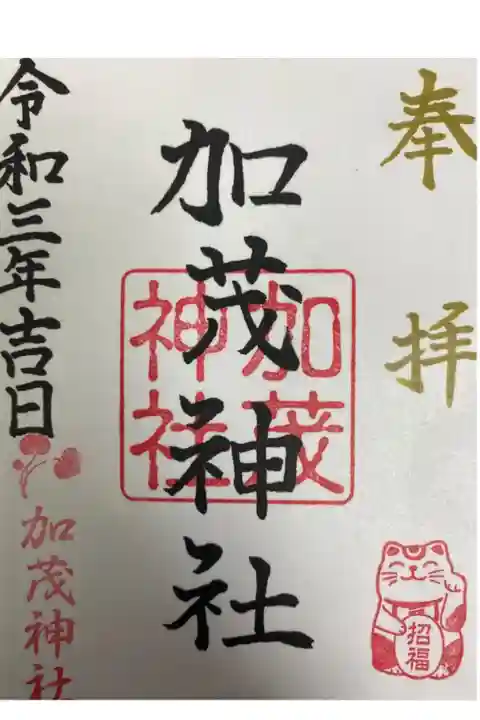 奉拝
加茂神社
加茂神社
招福
令和三年吉日
加茂神社